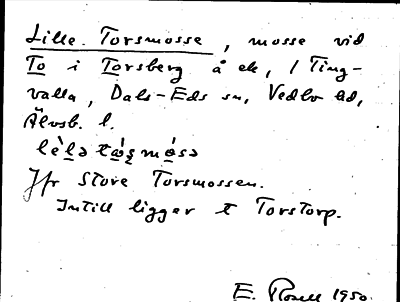 Lille Torsmosse, mosse vid
To i Torsberg å ek, / Ting-
valla, Dals-Eds sn, Vedbo hd,
Älvsb. l.
lèlə tɷ̀ʂmɷsə
Jfr Store Torsmossen.
Intill ligger t Torstorp.
E. Rosell 1950.